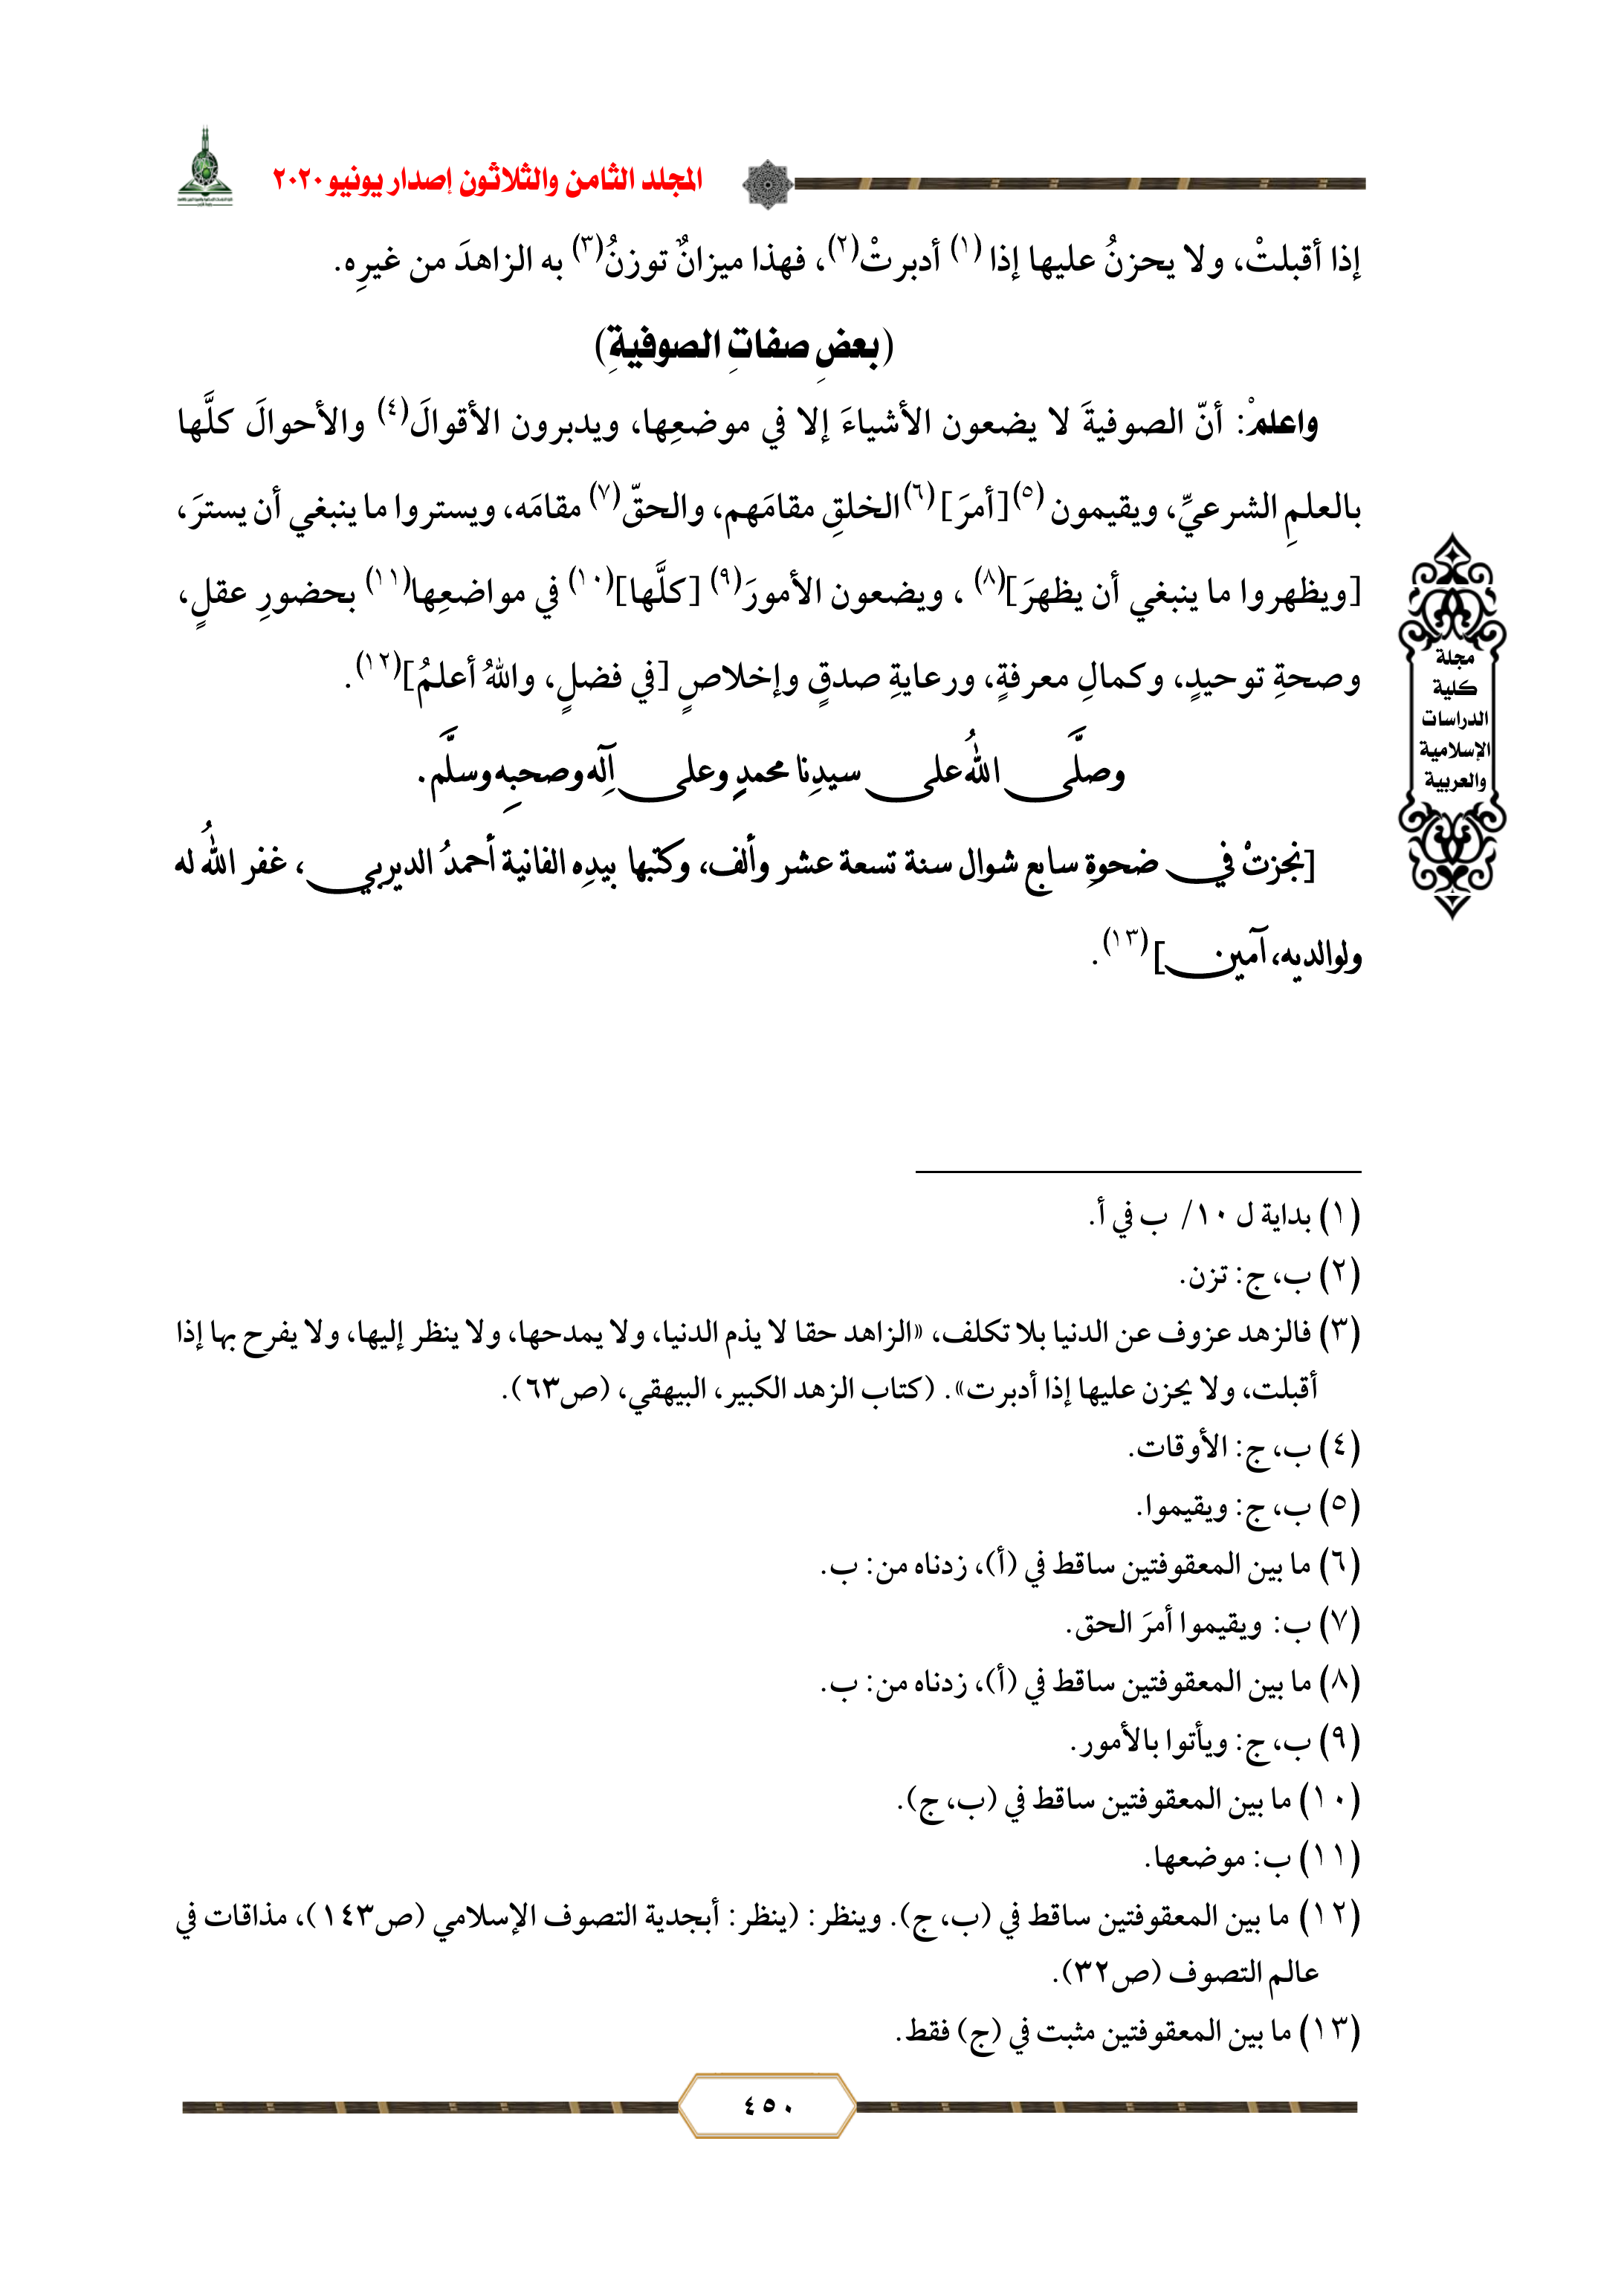 المجلد الثامن والثلاثون إصدار يونيو ٢٠٢٠
إذا أقبلتْ، ولا يحزنُ عليها إذا (١) أدبرتْ(٢)، فهذا ميزانٌ توزنُ(٣) به الزاهدَ من غيرِه.
(بعضِ صفاتِ الصوفيةِ)
واعلمْ: أنّ الصوفيةَ لا يضعون الأشياءَ إلا في موضعِها، ويدبرون الأقوالَ(٤) والأحوالَ كلَّها
بالعلمِ الشرعيِّ، ويقيمون (٥)[أمرَ] (٦)الخلقِ مقامَهم، والحقّ(٧) مقامَه، ويستروا ما ينبغي أن يسترَ،
[ويظهروا ما ينبغي أن يظهرَ](٨) ، ويضعون الأمورَ(٩) [كلَّها](١٠) في مواضعِها(١١) بحضورِ عقلٍ،
وصحةِ توحيدٍ، وكمالِ معرفةٍ، ورعايةِ صدقٍ وإخلاصٍ [في فضلٍ، واللهُ أعلمُ](١٢).
وصلَّى اللهُ على سيدِنا محمدٍ وعلى آلِه وصحبِه وسلَّم.
[نجزتْ في ضحوةِ سابع شوال سنة تسعة عشر وألف، وكتبها بيدِه الفانية أحمدُ الديربي، غفر اللهُ له
ولوالديه، آمين] (١٣).
مجلة
كلية
الدراسات
الإسلامية
والعربية
(١) بداية ل ١٠/ ب في أ.
(٢) ب، ج: تزن.
(٣) فالزهد عزوف عن الدنيا بلا تكلف، «الزاهد حقا لا يذم الدنيا، ولا يمدحها، ولا ينظر إليها، ولا يفرح بها إذا
أقبلت، ولا يحزن عليها إذا أدبرت». (كتاب الزهد الكبير، البيهقي، (ص٦٣).
(٤) ب، ج: الأوقات.
(٥) ب، ج: ويقيموا.
(٦) ما بين المعقوفتين ساقط في (أ)، زدناه من: ب.
(٧) ب: ويقيموا أمرَ الحق.
(٨) ما بين المعقوفتين ساقط في (أ)، زدناه من: ب.
(٩) ب، ج: ويأتوا بالأمور.
(١٠) ما بين المعقوفتين ساقط في (ب، ج).
(١١) ب: موضعها.
(١٢) ما بين المعقوفتين ساقط في (ب، ج). وينظر: (ينظر: أبجدية التصوف الإسلامي (ص١٤٣)، مذاقات في
عالم التصوف (ص٣٢).
(١٣) ما بين المعقوفتين مثبت في (ج) فقط.
٤٥٠